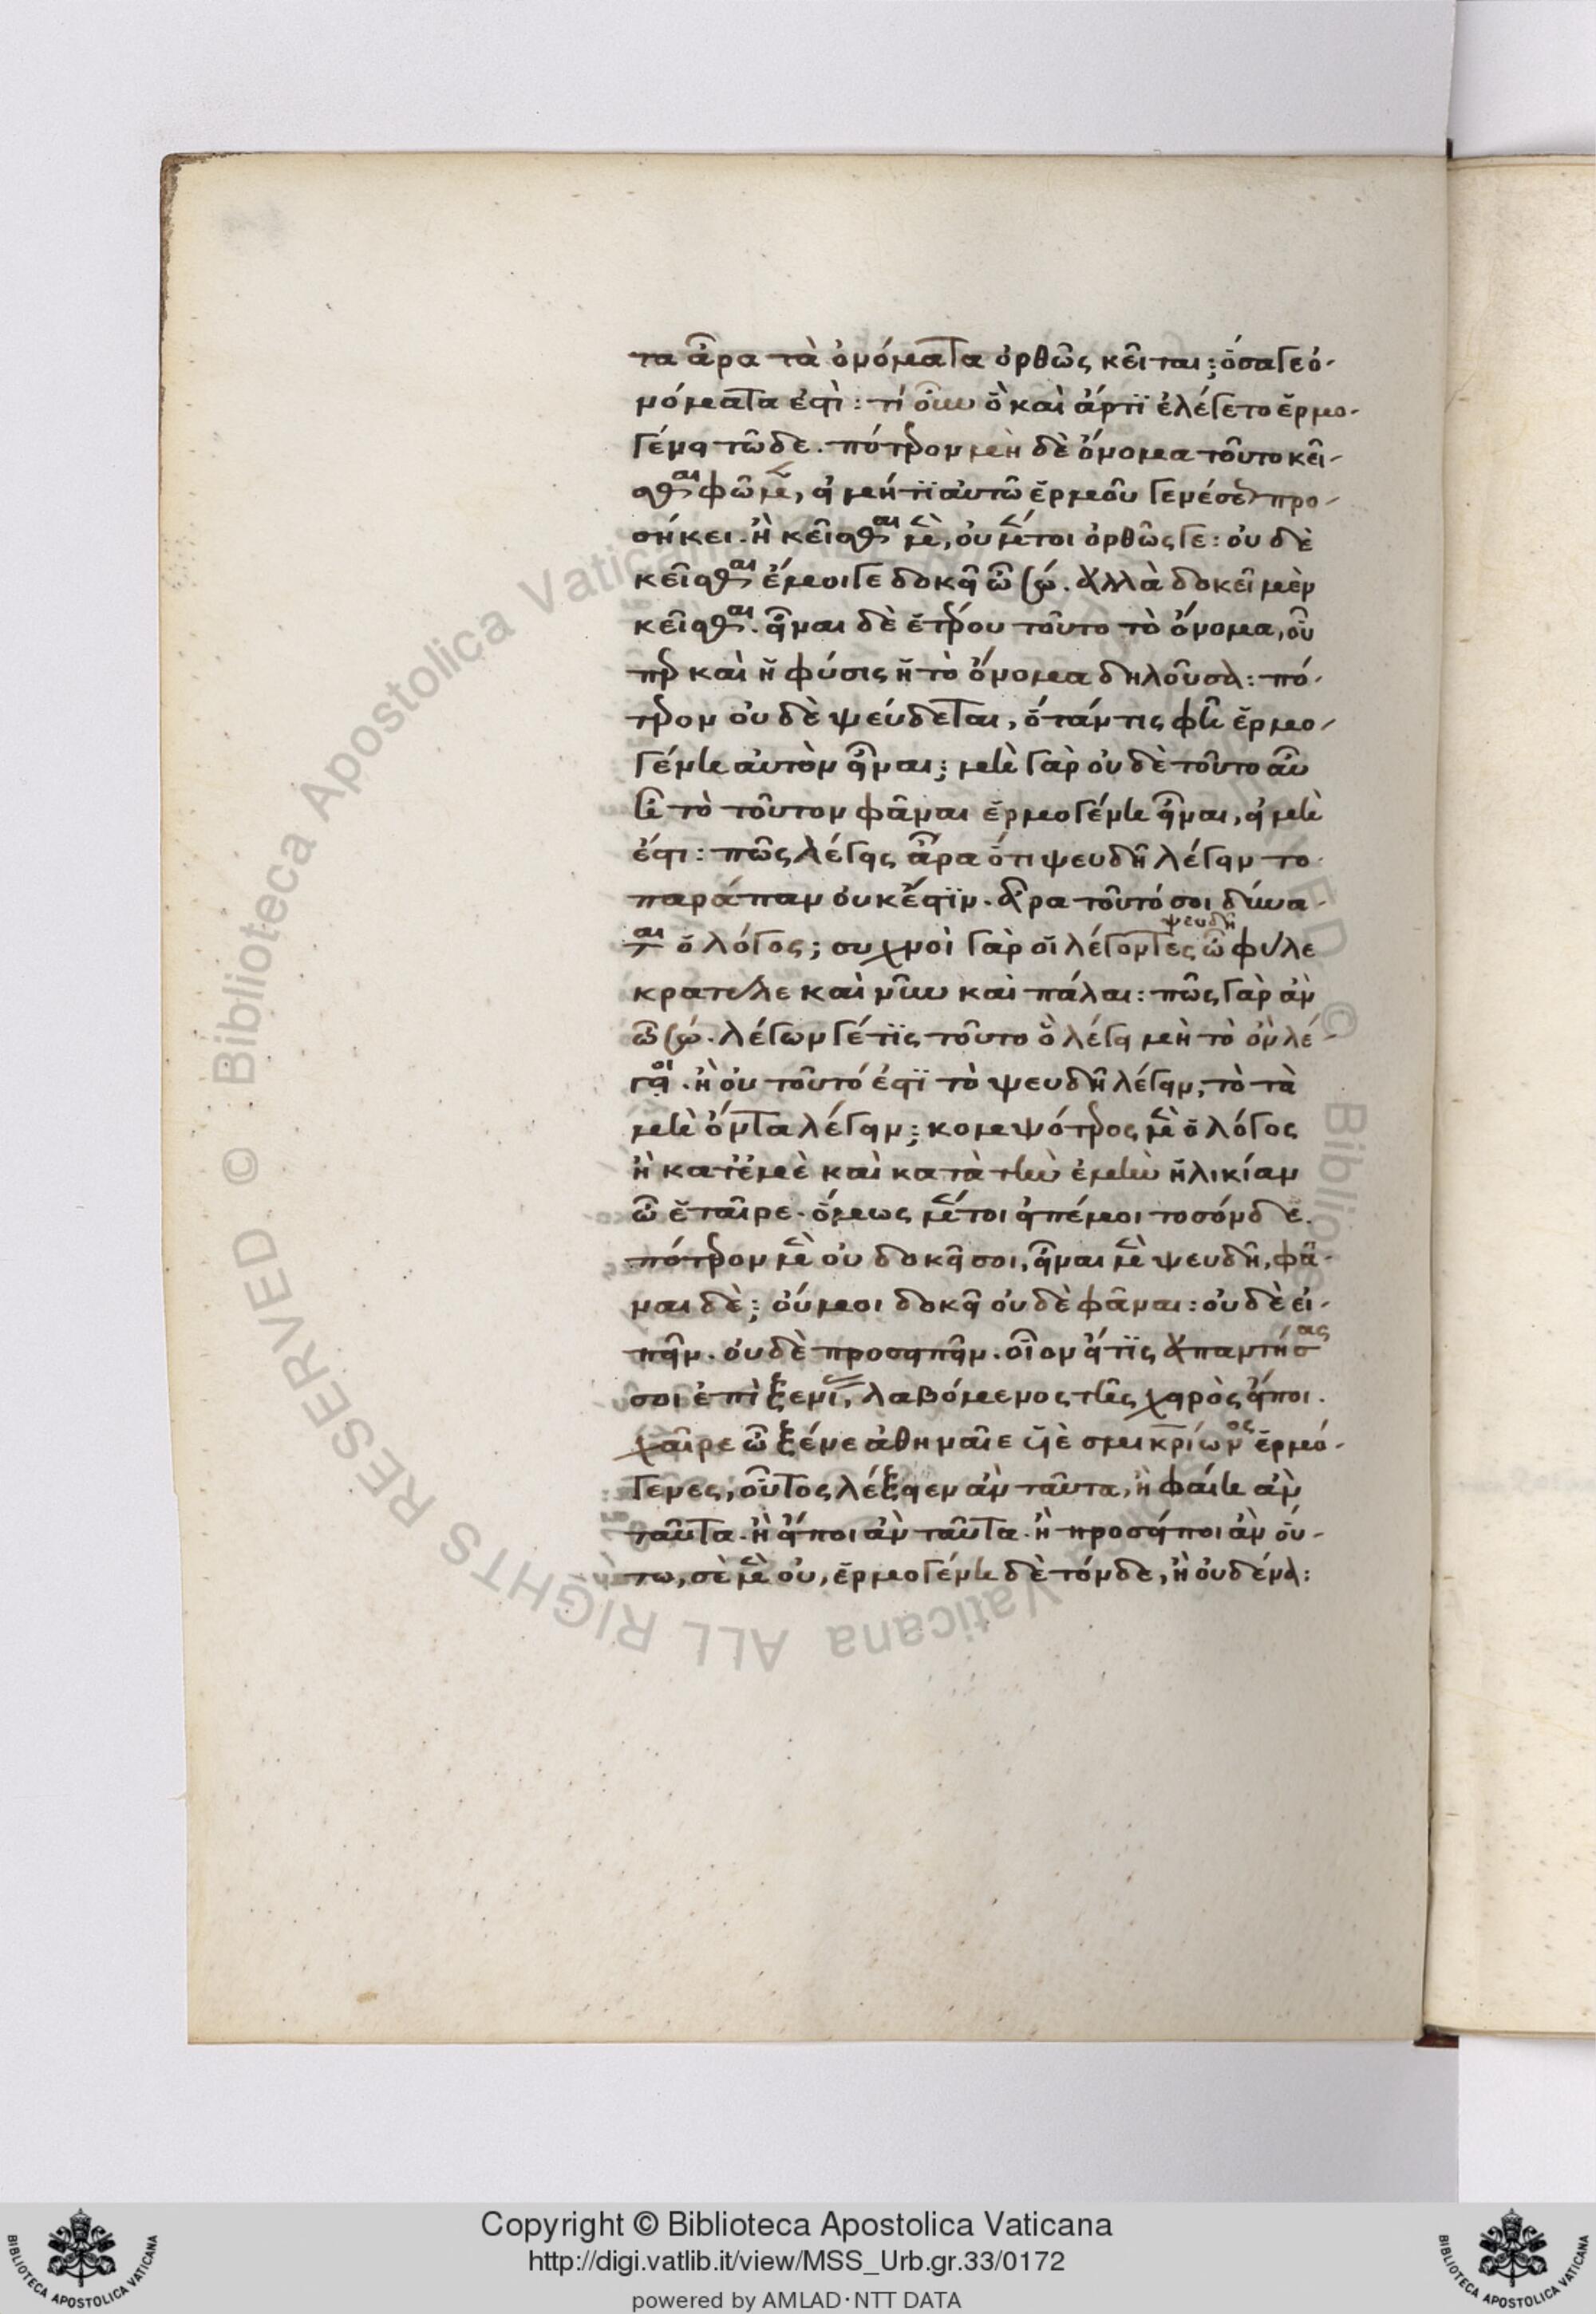 τα ἆρα τὰ ὀνόματα ὀρθῶς κεῖται; ὅσα γε ὀ-
νόματά ἐστι: τί οὖν ὃ καὶ ἄρτι ἐλέγετο ἑρμο-
γένει τῶδε. πότερον μὴ δὲ ὄνομα τοῦτο κεῖ-
σθαι φῶμεν, εἰ μή τι αὐτῶ ἑρμοῦ γενέσεως προ-
σήκει. ἢ κεῖσθαι μὲν, οὐ μέντοι ὀρθῶς γε: οὐδὲ
κεῖσθαι ἔμοιγε δοκεῖ ὦ σώ. ἀλλὰ δοκεῖ μὲν
κεῖσθαι. εἶναι δὲ ἑτέρου τοῦτο τὸ ὄνομα, οὗ
περ καὶ ἡ φύσις ἡ τὸ ὄνομα δηλοῦσα: πό-
τερον οὐδὲ ψεύδεται, ὅτάν τις φῆ ἑρμο-
γένη αὐτὸν εἶναι; μὴ γὰρ οὐδὲ τοῦτο αὖ
ἦ τὸ τοῦτον φᾶναι ἑρμογένη εἶναι, εἰ μὴ
ἔστι: πῶς λέγεις ἆρα ὅτι ψευδῆ λέγειν το
παράπαν οὐκ ἔστιν. ἆρα τοῦτό σοι δύνα-
ται ὁ λόγος; συχνοὶ γὰρ οἱ λέγοντες ψευδῆ ὦ φίλε
κρατύλε καὶ νῦν καὶ πάλαι: πῶς γὰρ ἂν
ὦ σώ. λέγων γέ τις τοῦτο ὃ λέγει μὴ τὸ ὂν λέ-
γοι. ἢ οὐ τοῦτό ἐστι τὸ ψευδῆ λέγειν, τὸ τὰ
μὴ ὄντα λέγειν; κομψότερος μὲν ὁ λόγος
ἢ κατ' ἐμὲ καὶ κατὰ τὴν ἐμὴν ἡλικίαν
ὦ ἑταῖρε. ὅμως μέντοι εἰπέ μοι τοσόνδε.
πότερον μὲν οὐ δοκεῖ σοι, εἶναι μὲν ψευδῆ, φᾶ-
ναι δὲ; οὔ μοι δοκεῖ οὐδὲ φᾶναι: οὐδὲ εἰ-
πεῖν. οὐδὲ προσειπεῖν. οἷον εἴ τις ἀπαντήσας
σοι ἐπὶ ξενίας, λαβόμενος τῆς χειρὸς εἴποι.
χαῖρε ὦ ξένε ἀθηναῖε υἱὲ σμικρίωνος ἑρμό-
γενες, οὗτος λέξειεν ἂν ταῦτα, ἢ φαίη ἂν
ταῦτα. ἢ εἴποι ἂν ταῦτα. ἢ προσείποι ἂν οὕ-
τω, σὲ μὲν οὐ, ἑρμογένη δὲ τόνδε, ἢ οὐδένα:
Copyright © Biblioteca Apostolica Vaticana
http://digi.vatlib.it/view/MSS_Urb.gr.33/0172
powered by AMLAD·NTT DATA
BIBLIOTECA APOSTOLICA VATICANA
BIBLIOTECA APOSTOLICA VATICANA
© Biblioteca Apostolica Vaticana ALL RIGHTS RESERVED